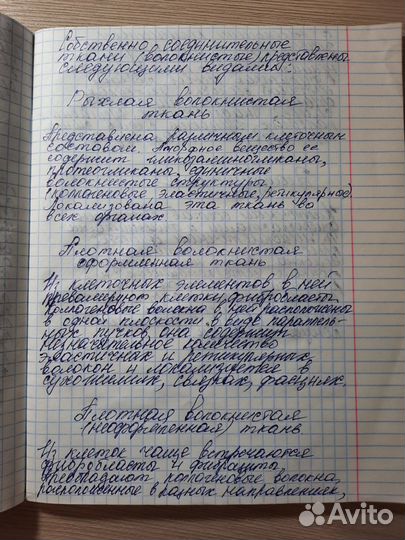 Собственно соединительные
ткани (волокнистые) представлены
следующими видами:
Рыхлая волокнистая
ткань
Представлена различным клеточным
составом. Аморфное вещество ее
содержит гликозаминогликаны,
протеогликаны, единичные
волокнистые структуры
(коллагеновые, эластичные, ретикулярные).
Локализована эта ткань во
всех органах
Плотная волокнистая
оформленная ткань
Из клеточных элементов в ней
превалируют клетки фибробласты
Коллагеновые волокна в ней расположены
в одной плоскости в виде параллель-
ных пучков, она содержит
незначительное количество
эластичных и ретикулярных
волокон и локализуется в
сухожилиях, связках, фасциях.
Плотная волокнистая
(неоформленная) ткань
Из клеток чаще встречаются
фибробласты и фиброциты
преобладают коллагеновые волокна,
расположенные в разных направлениях,
Avito